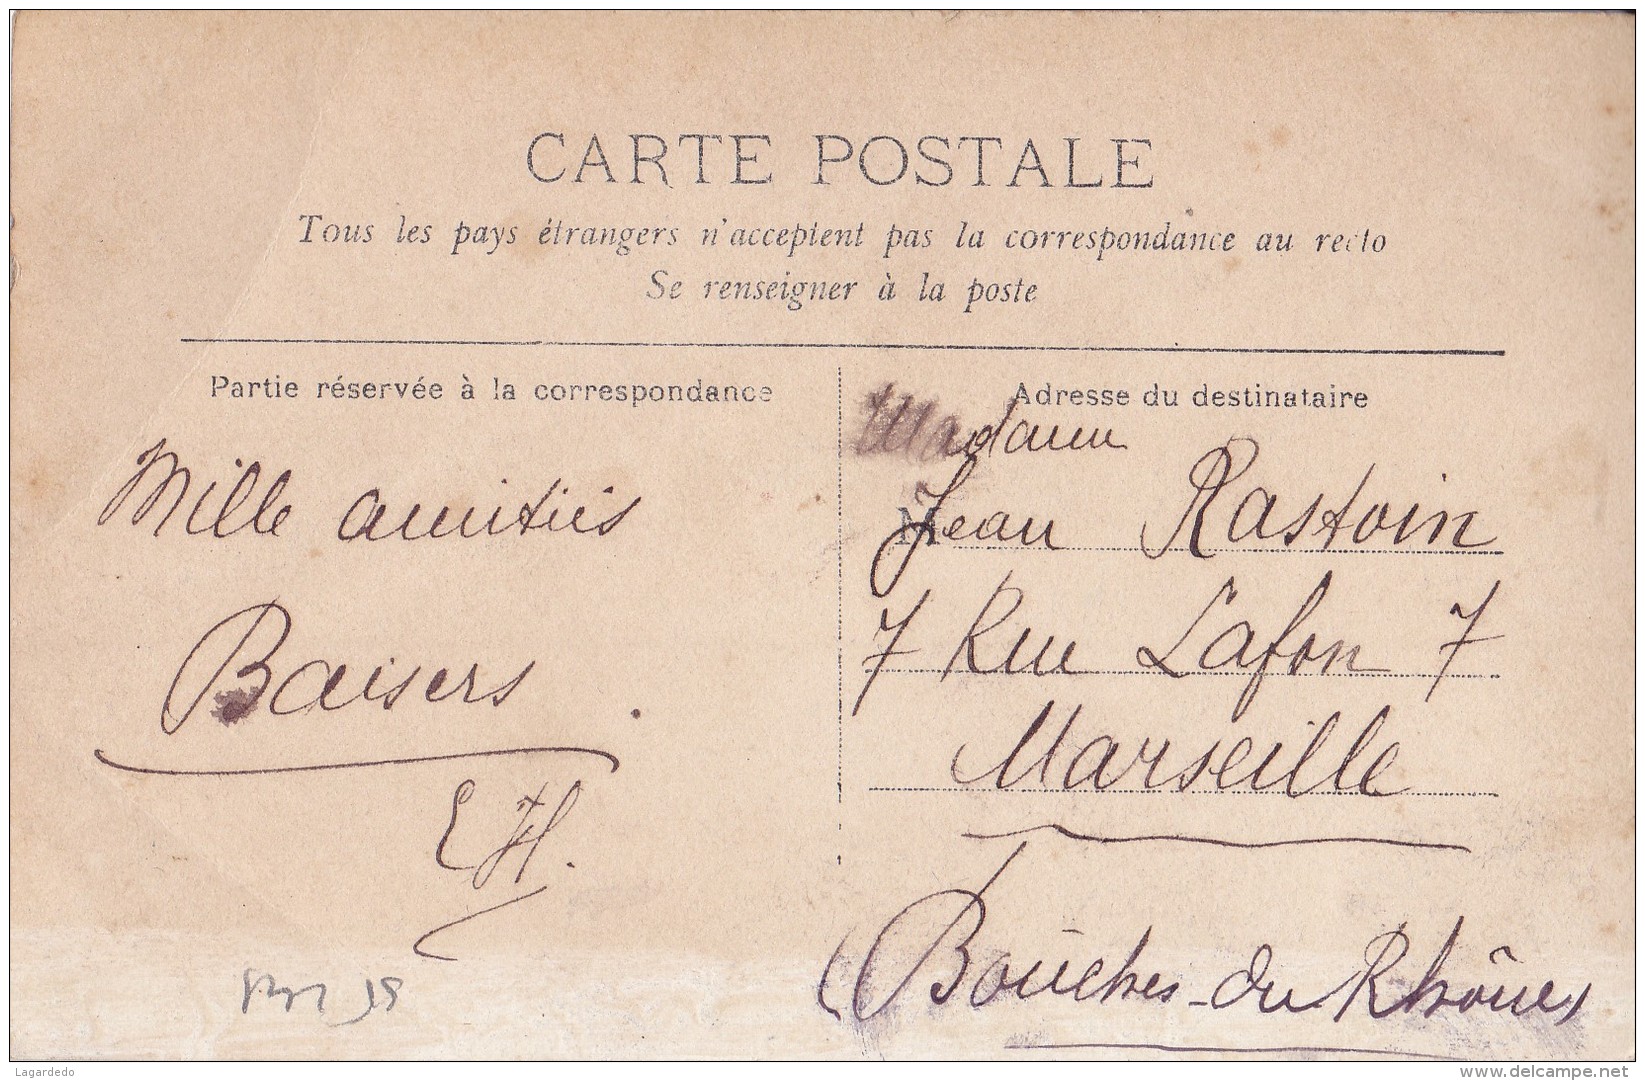 CARTE POSTALE
Tous les pays étrangers n'acceptent pas la correspondance au recto
Se renseigner à la poste
Partie réservée à la correspondance
Mille amitiés
Baisers.
E H.
Adresse du destinataire
Madame
M Jean Rastoin
7 Rue Lafon 7
Marseille
(Bouches-du Rhônes
Lagardedo
delcampe.net